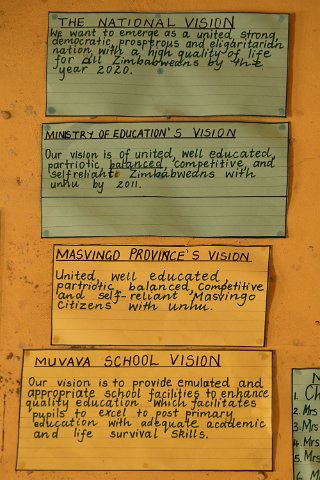 THE NATIONAL VISION
We want to emerge as a united, strong,
democratic, prosperous and eligaritarian
nation, with a high quality of life
for all Zimbabweans by the
year 2020.
MINISTRY OF EDUCATION'S VISION
Our vision is of united, well educated,
partriotic, balanced, competitive, and
selfreliant Zimbabweans with
unhu by 2011.
MASVINGO PROVINCE'S VISION
United, well educated,
partriotic, balanced, competitive
and self-reliant Masvingo
citizens with unhu.
MUVAVA SCHOOL VISION
Our vision is to provide emulated and
appropriate school facilities to enhance
quality education which facilitates
pupils to excel to post primary
education with adequate academic
and life survival skills.
1. Ch
2. Mrs
3. Mrs
4. Mrs
5. Mrs
6. M